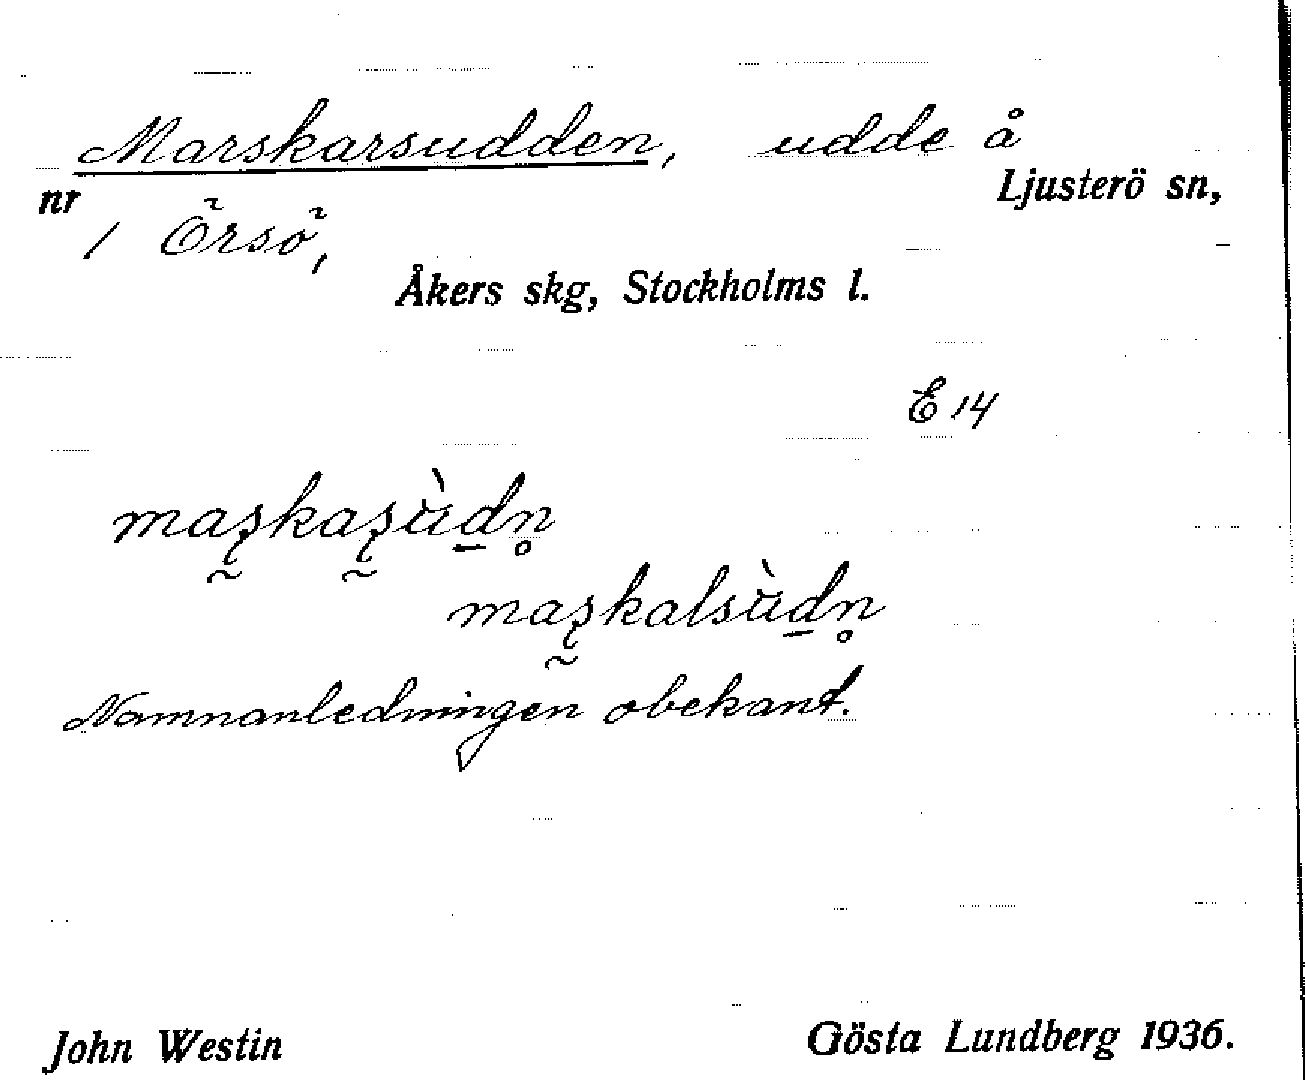 Marskarsudden, udde å
Ljusterö sn,
nr
1 Örsö,
Åkers skg, Stockholms l.
E 14
maʂkaʂùdn̥
maʂkalsùdn̥
Namnanledningen obekant.
John Westin
Gösta Lundberg 1936.